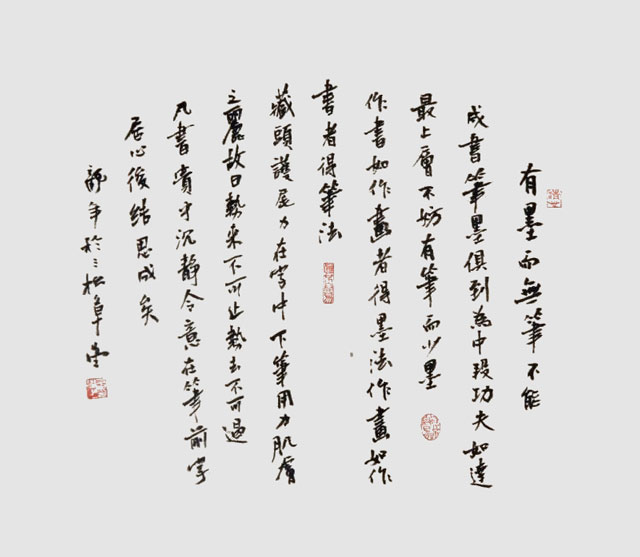 有墨而無筆不能
成書筆墨俱到為中段功夫如達
最上層不妨有筆而少墨
作書如作畫者得墨法作畫如作
書者得筆法
藏頭護尾力在字中下筆用力肌膚
之麗故曰勢来不可止勢去不可遏
凡書貴乎沉靜令意在筆前字
居心後結思成矣
年於三松草堂